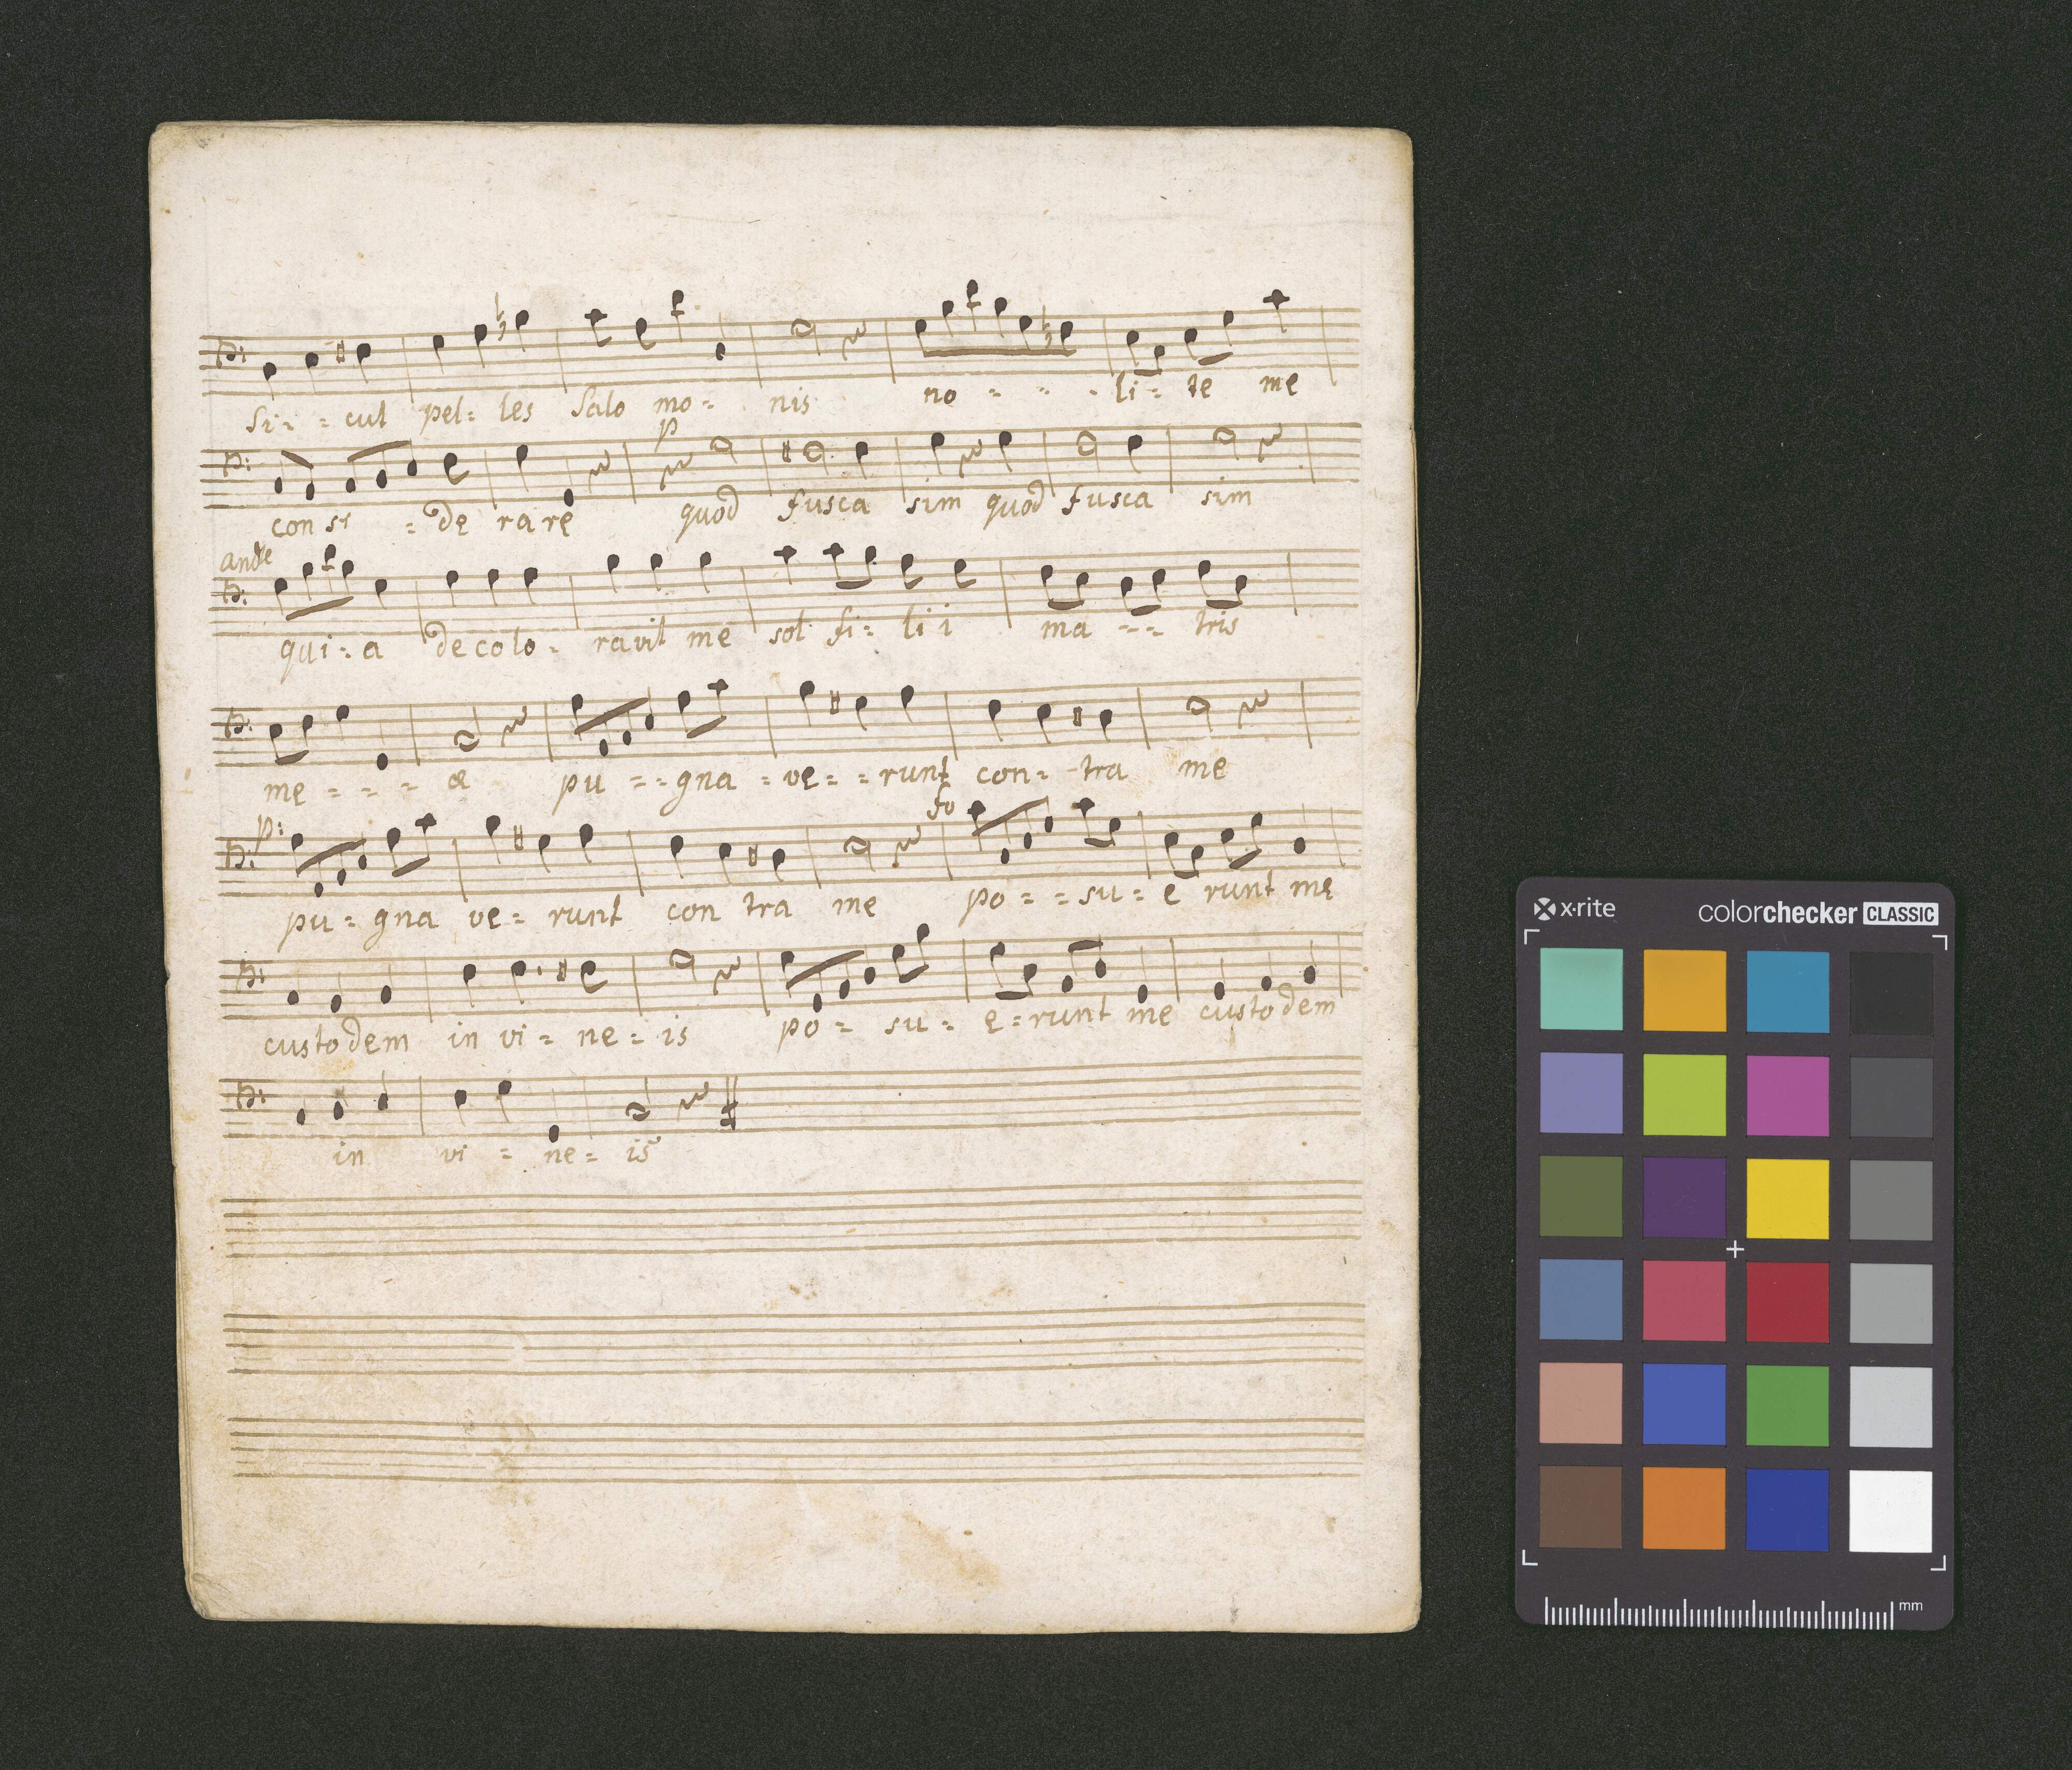 Si - - cut pel= les Salo mo= nis no - - - li= te me
p
con si = de ra re quod fusca sim quod fusca sim
andte
qui=a decolo- ravit me sol fi= li i ma - - tris
me - - - æ pu - - gna - ve - - runt con- tra me
p: fo
pu= gna ve= runt con tra me po= - su= e runt me
custodem in vi= ne= is po= su= e=runt me custodem
in vi = ne= is
x·rite colorchecker CLASSIC
mm